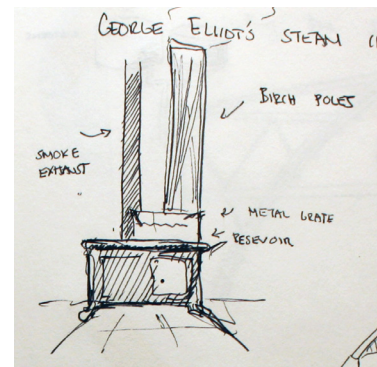 GEORGE ELLIOT'S STEAM
BIRCH POLES
SMOKE
EXHAUST
METAL GRATE
RESEVOIR